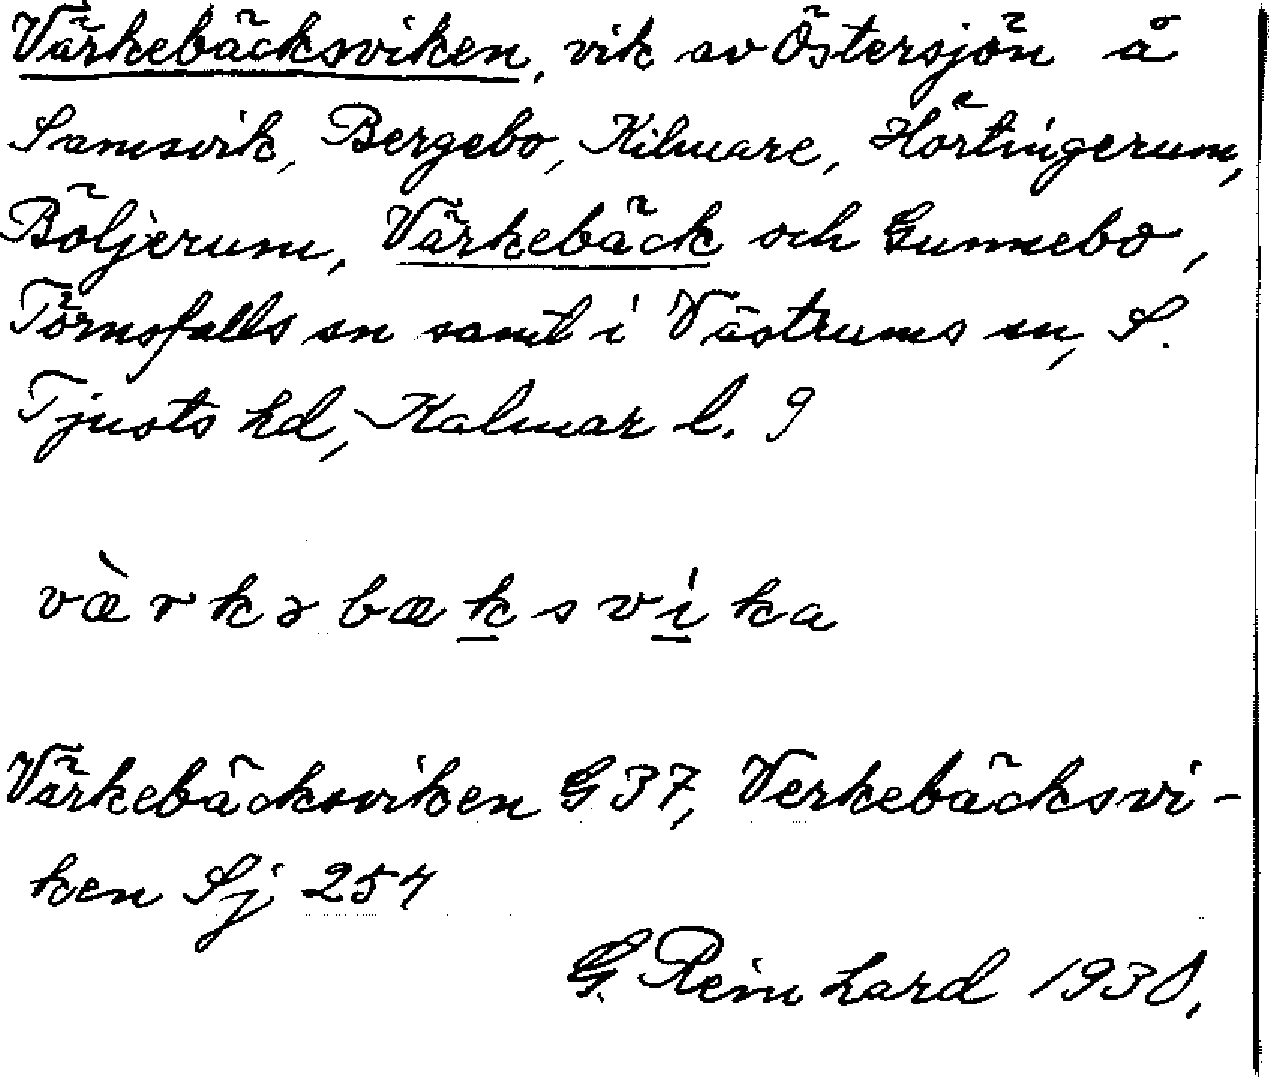 Värkebäcksviken, vik av Östersjön å
Samsvik, Bergebo, Kilmare, Hörtingerum,
Böljerum, Värkebäck och Gunnebo,
Törnsfalls sn samt i Västrums sn, S.
Tjusts hd, Kalmar l. 9
væ̀rkəbæksvika
Värkebäcksviken G 37, Verkebäcksvi-
ken Sj 254
G. Reinhard 1930.